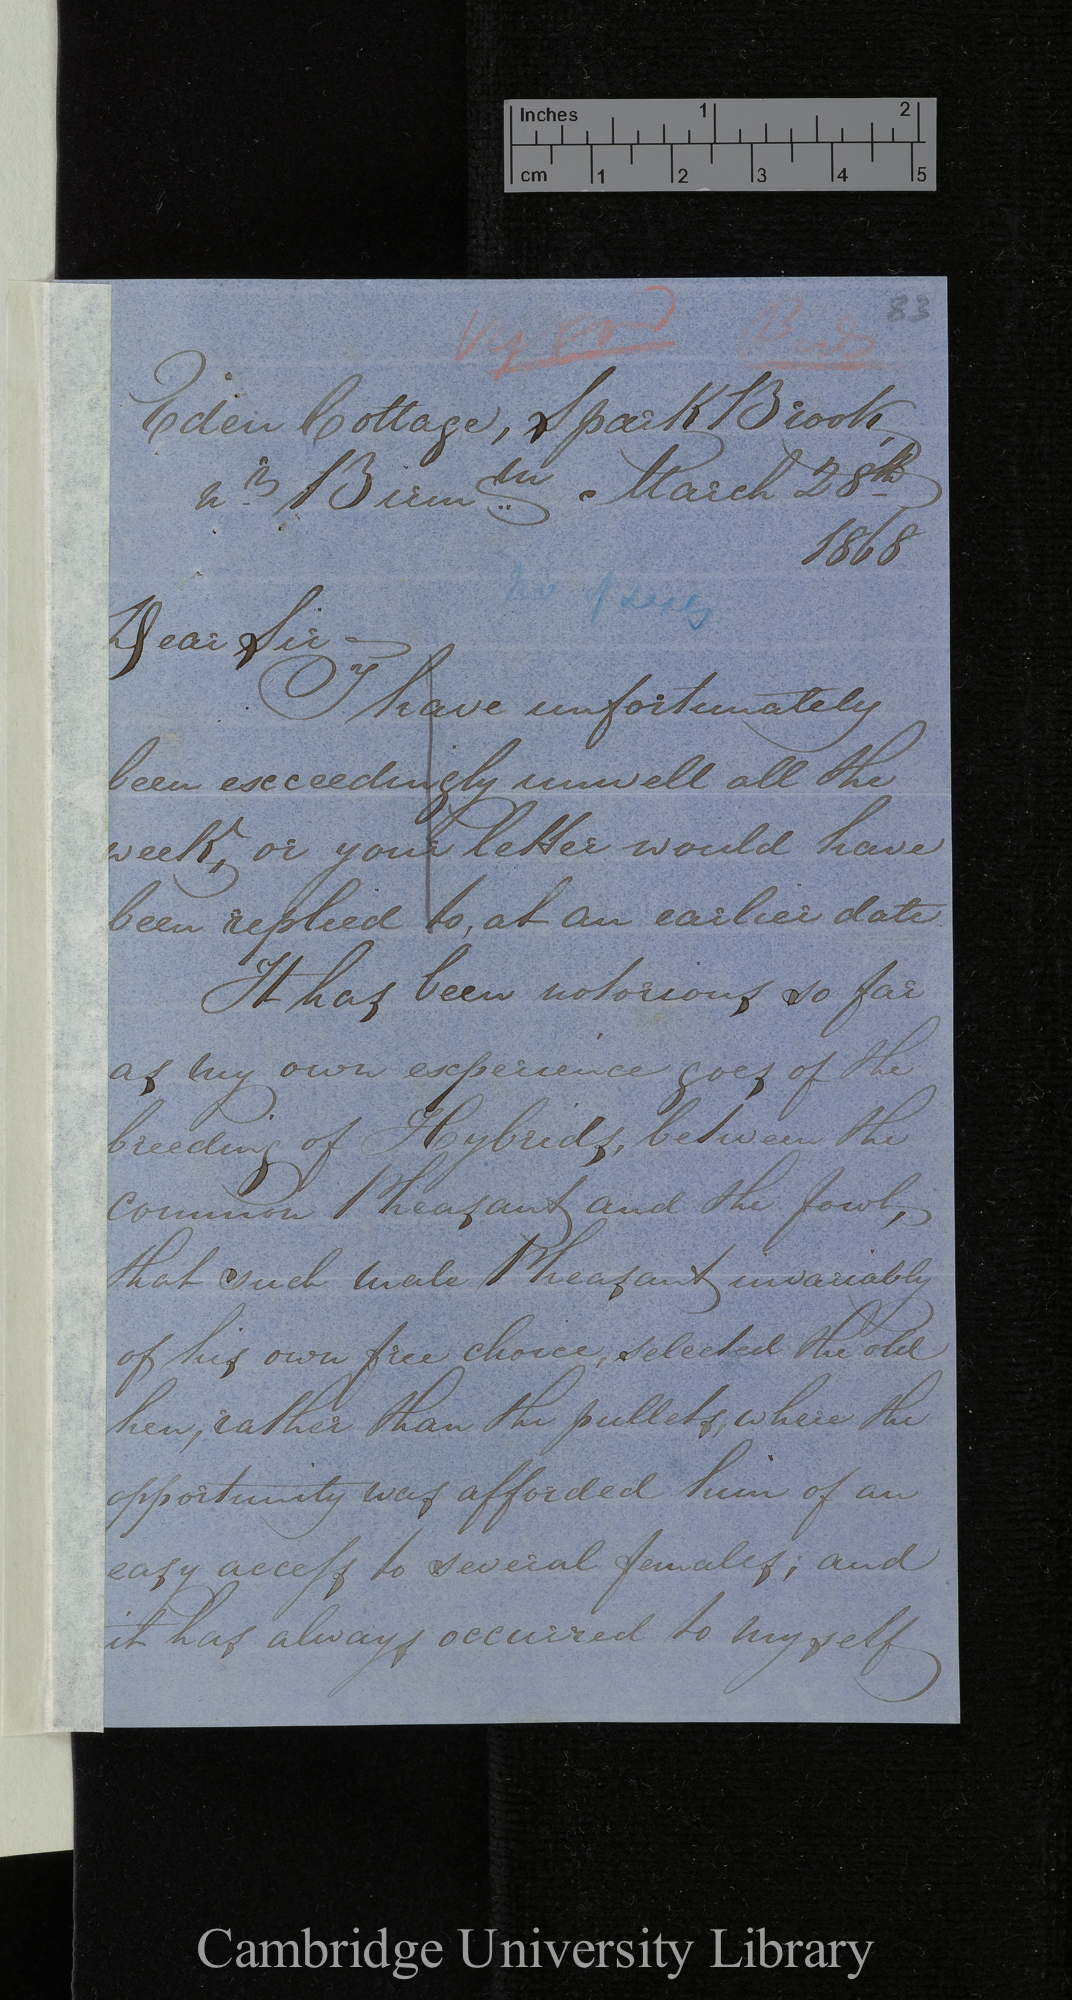 Inches 1 2
cm 1 2 3 4 5
83
Birds
Eden Cottage, Spark Brook,
nr. Birm.m March 28th
1868
No of sexes
Dear Sir —
I have unfortunately
been exceedingly unwell all the
week, or your letter would have
been replied to, at an earlier date.
It has been notorious so far
as my own experience goes of the
breeding of Hybrids, between the
common Pheasant and the fowl,
that such male Pheasant invariably
of his own free choice, selected the old
hen, rather than the pullets, where the
opportunity was afforded him of an
easy access to several females; and
it has always occurred to myself
Cambridge University Library